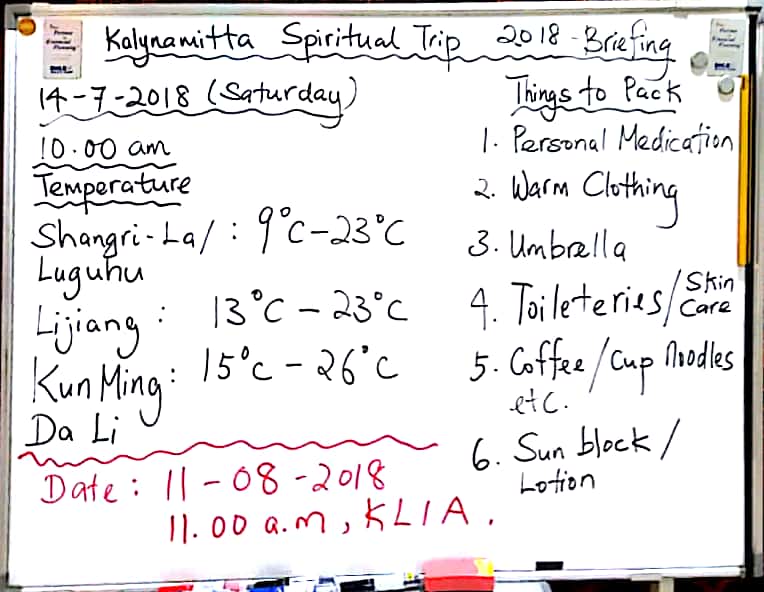 Kalynamitta Spiritual Trip 2018 - Briefing
14-7-2018 (Saturday)
10.00 am
Temperature
Shangri-La/ : 9°C-23°C
Luguhu
Lijiang : 13°C - 23°C
KunMing: 15°C - 26°C
Da Li
Date: 11-08-2018
11.00 a.m, KLIA.
Things to Pack
1. Personal Medication
2. Warm Clothing
3. Umbrella
4. Toileteries/Skin Care
5. Coffee/Cup Noodles
etc.
6. Sun block/
Lotion